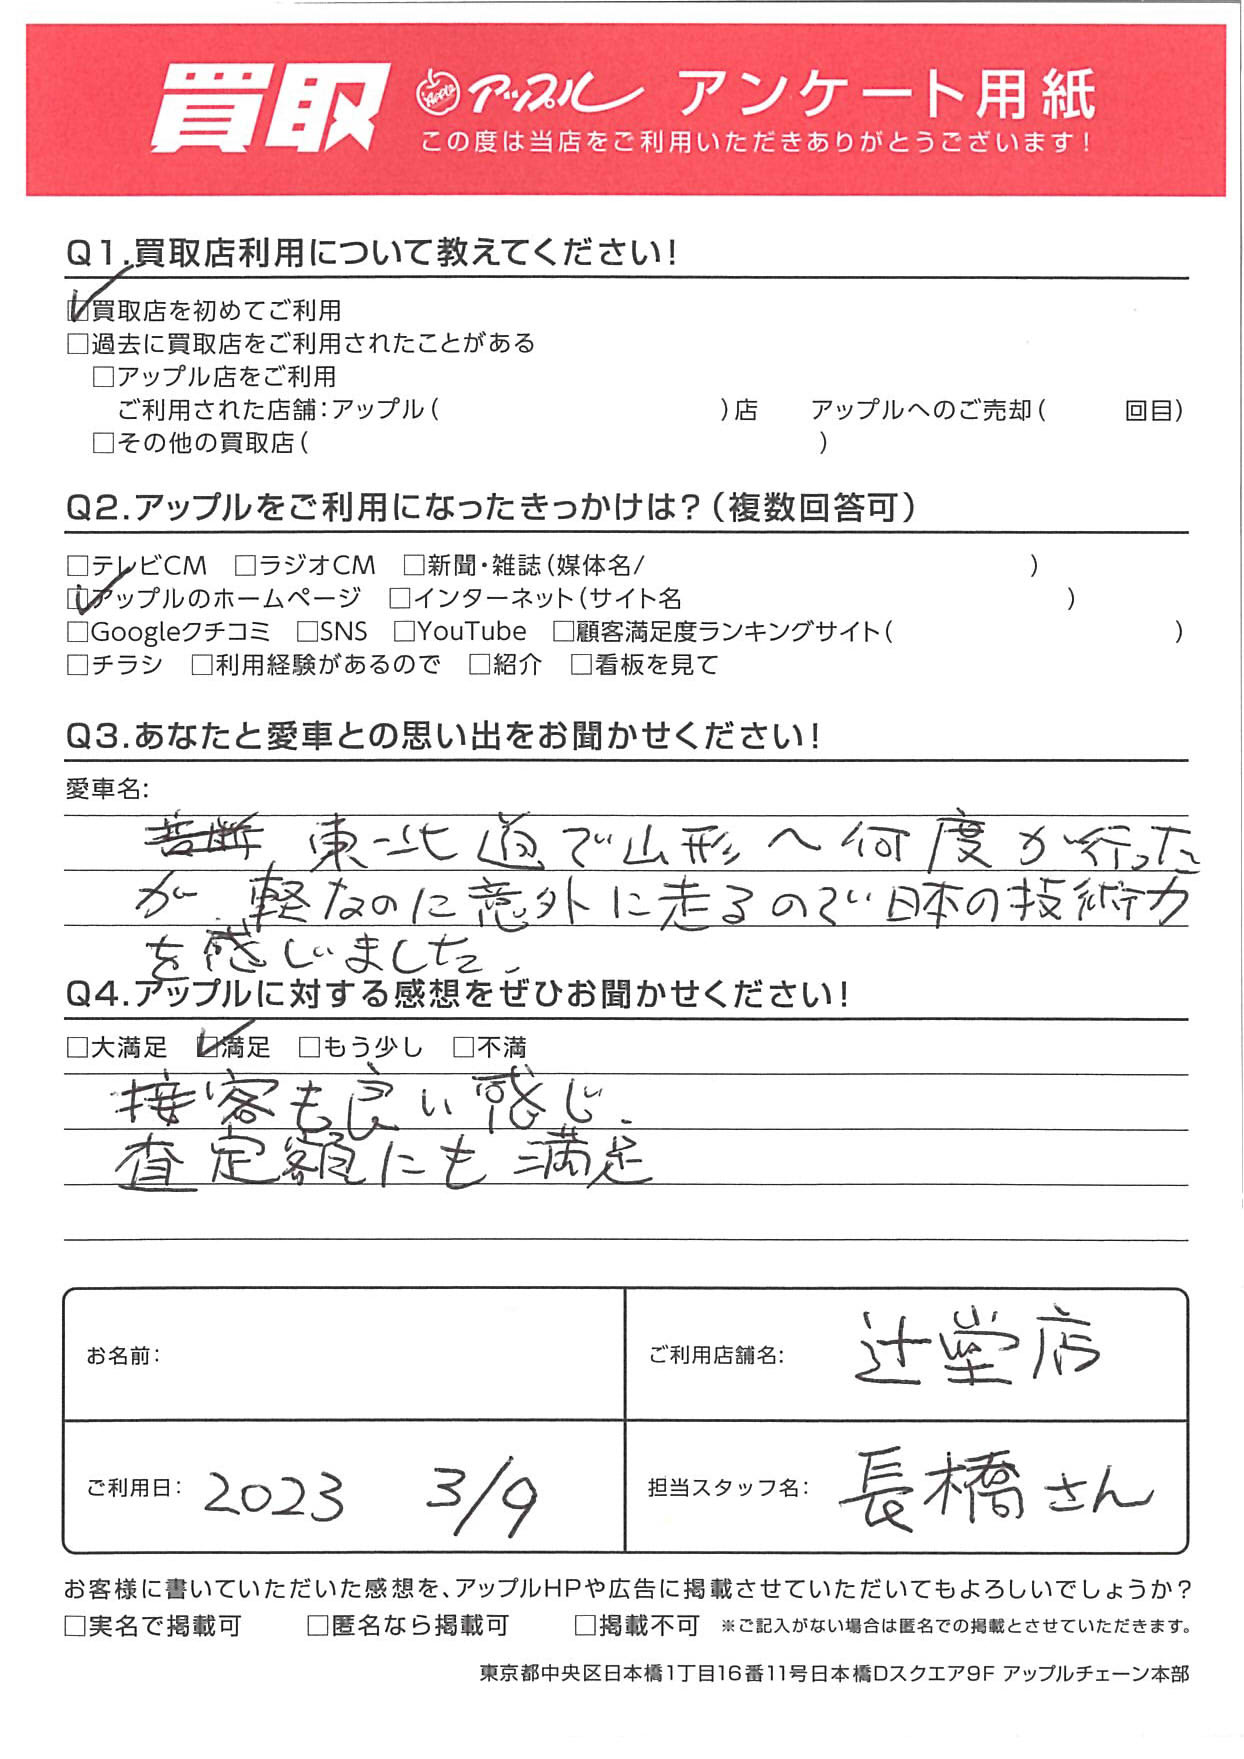 買取 Apple アップル アンケート用紙
この度は当店をご利用いただきありがとうございます！
Q1.買取店利用について教えてください！
☑買取店を初めてご利用
□過去に買取店をご利用されたことがある
□アップル店をご利用
ご利用された店舗：アップル（　）店　アップルへのご売却（　回目）
□その他の買取店（　）
Q2.アップルをご利用になったきっかけは？（複数回答可）
□テレビCM　□ラジオCM　□新聞・雑誌（媒体名/　）
☑アップルのホームページ　□インターネット（サイト名　）
□Googleクチコミ　□SNS　□YouTube　□顧客満足度ランキングサイト（　）
□チラシ　□利用経験があるので　□紹介　□看板を見て
Q3.あなたと愛車との思い出をお聞かせください！
愛車名：
東北道で山形へ何度か行った
が、軽なのに意外に走るので日本の技術力
を感じました。
Q4.アップルに対する感想をぜひお聞かせください！
□大満足　☑満足　□もう少し　□不満
接客も良い感じ。
査定額にも満足
お名前：
ご利用店舗名：辻堂店
ご利用日：2023 3/9
担当スタッフ名：長橋さん
お客様に書いていただいた感想を、アップルHPや広告に掲載させていただいてもよろしいでしょうか？
□実名で掲載可　□匿名なら掲載可　□掲載不可　※ご記入がない場合は匿名での掲載とさせていただきます。
東京都中央区日本橋1丁目16番11号日本橋Dスクエア9F アップルチェーン本部